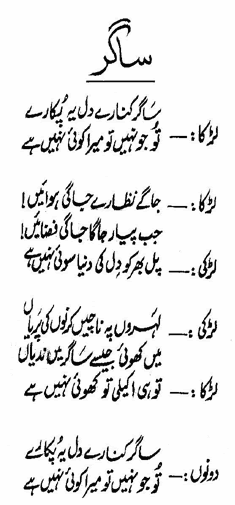 ساگر
ساگر کنارے دل یہ پُکارے
لڑکا:— تُو جو نہیں تو میرا کوئی نہیں ہے
لڑکا:— جاگے نظارے جاگی ہوائیں!
جب پیار جاگا جاگی فضائیں!
لڑکی:— پل بھر کو دِل کی دنیا سوئی نہیں ہے
لڑکی:— لہروں پہ ناچیں کرنوں کی پریاں
میں کھوئی جیسے ساگر میں ندیاں
لڑکا:— تو ہی اکیلی تو کھوئی نہیں ہے
ساگر کنارے دل یہ پُکارے
دونوں:— تُو جو نہیں تو میرا کوئی نہیں ہے